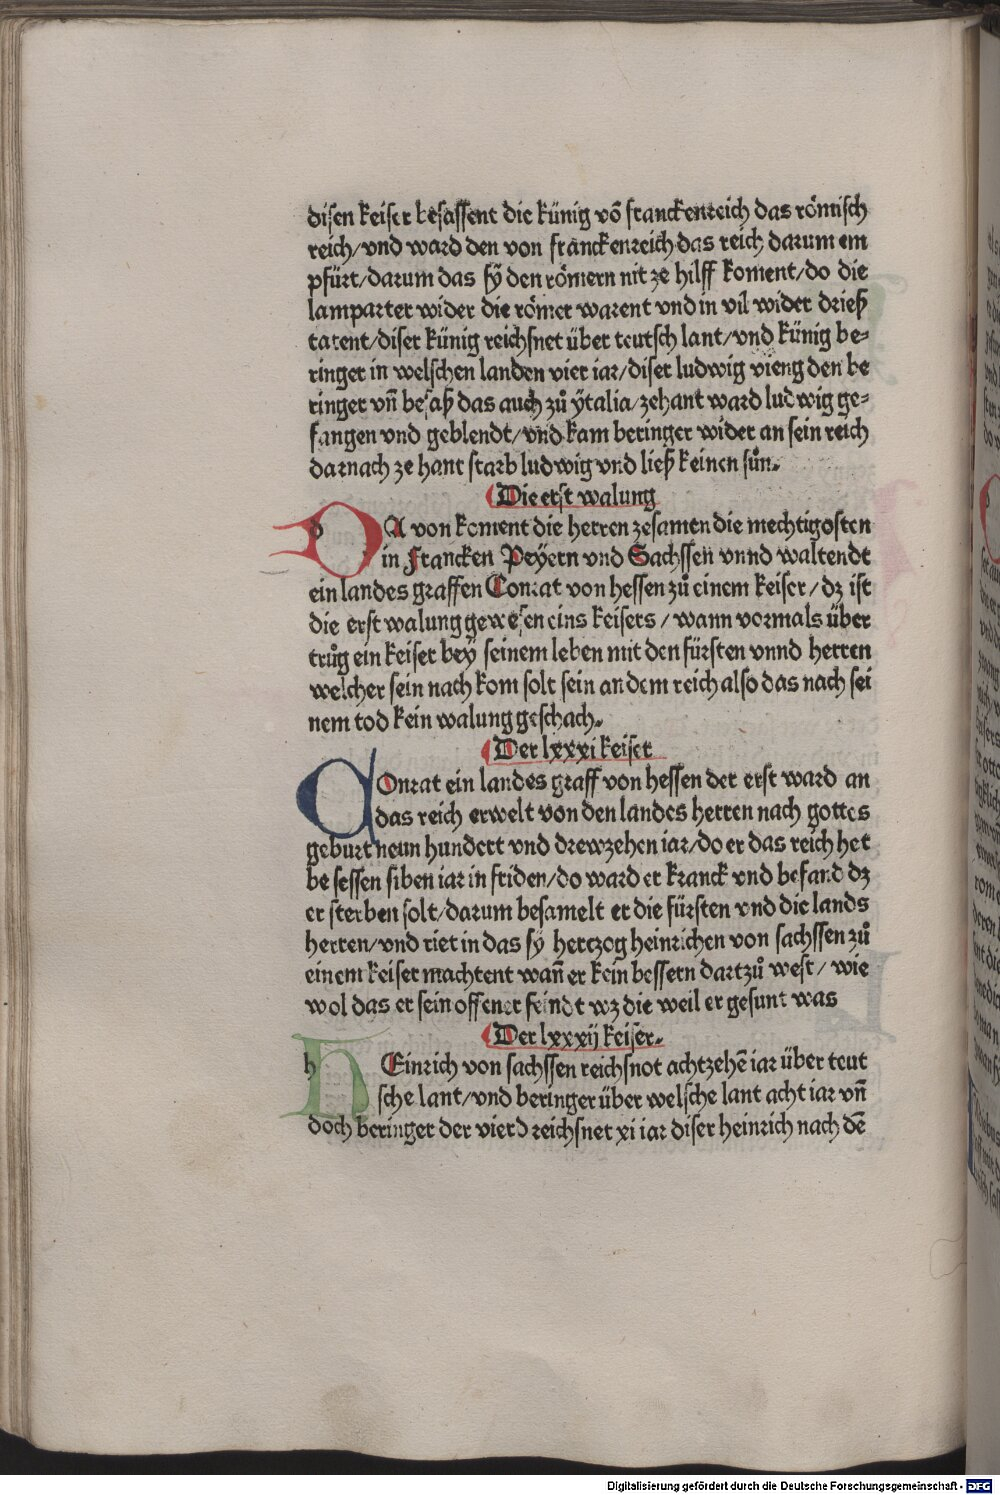 disen keiser besassent die künig võ franckenreich das römisch
reich/vnd ward den von franckenreich das reich darum em
pfürt/darum das sÿ den römern nit ze hilff koment/do die
lamparter wider die römer warent vnd in vil wider drieß
tatent/diser künig reichsnet über teutsch lant/vnd künig be⸗
ringer in welschen landen vier iar/diser ludwig vieng den be
ringer vn̄ besaß das auch zů ÿtalia/zehant ward ludwig ge⸗
fangen vnd geblendt/vnd kam beringer wider an sein reich
darnach ze hant starb ludwig vnd ließ keinen sůn.
Die erst walung
DA von koment die herren zesamen die mechtigosten
in Francken Peÿern vnd Sachssen vnnd waltendt
ein landes graffen Conrat von hessen zů einem keiser/dz ist
die erst walung gewesen eins keisers/wann vormals über
trůg ein keiser beÿ seinem leben mit den fürsten vnnd herren
welcher sein nach kom solt sein an dem reich also das nach sei
nem tod kein walung geschach.
Der lxxxi keiser
COnrat ein landes graff von hessen der erst ward an
das reich erwelt von den landes herren nach gottes
geburt neun hundert vnd drewzehen iar/do er das reich het
be sessen siben iar in friden/do ward er kranck vnd befand dz
er sterben solt/darum besamelt er die fürsten vnd die lands
herren/vnd riet in das sÿ hertzog heinrichen von sachssen zů
einem keiser machtent wan̄ er kein bessern dartzů west/wie
wol das er sein offener feindt wz die weil er gesunt was
Der lxxxij keiser.
HEinrich von sachssen reichsnot achtzehẽ iar über teut
sche lant/vnd beringer über welsche lant acht iar vn̄
doch beringer der vierd reichsnet xi iar diser heinrich nach dẽ
Digitalisierung gefördert durch die Deutsche Forschungsgemeinschaft - DFG